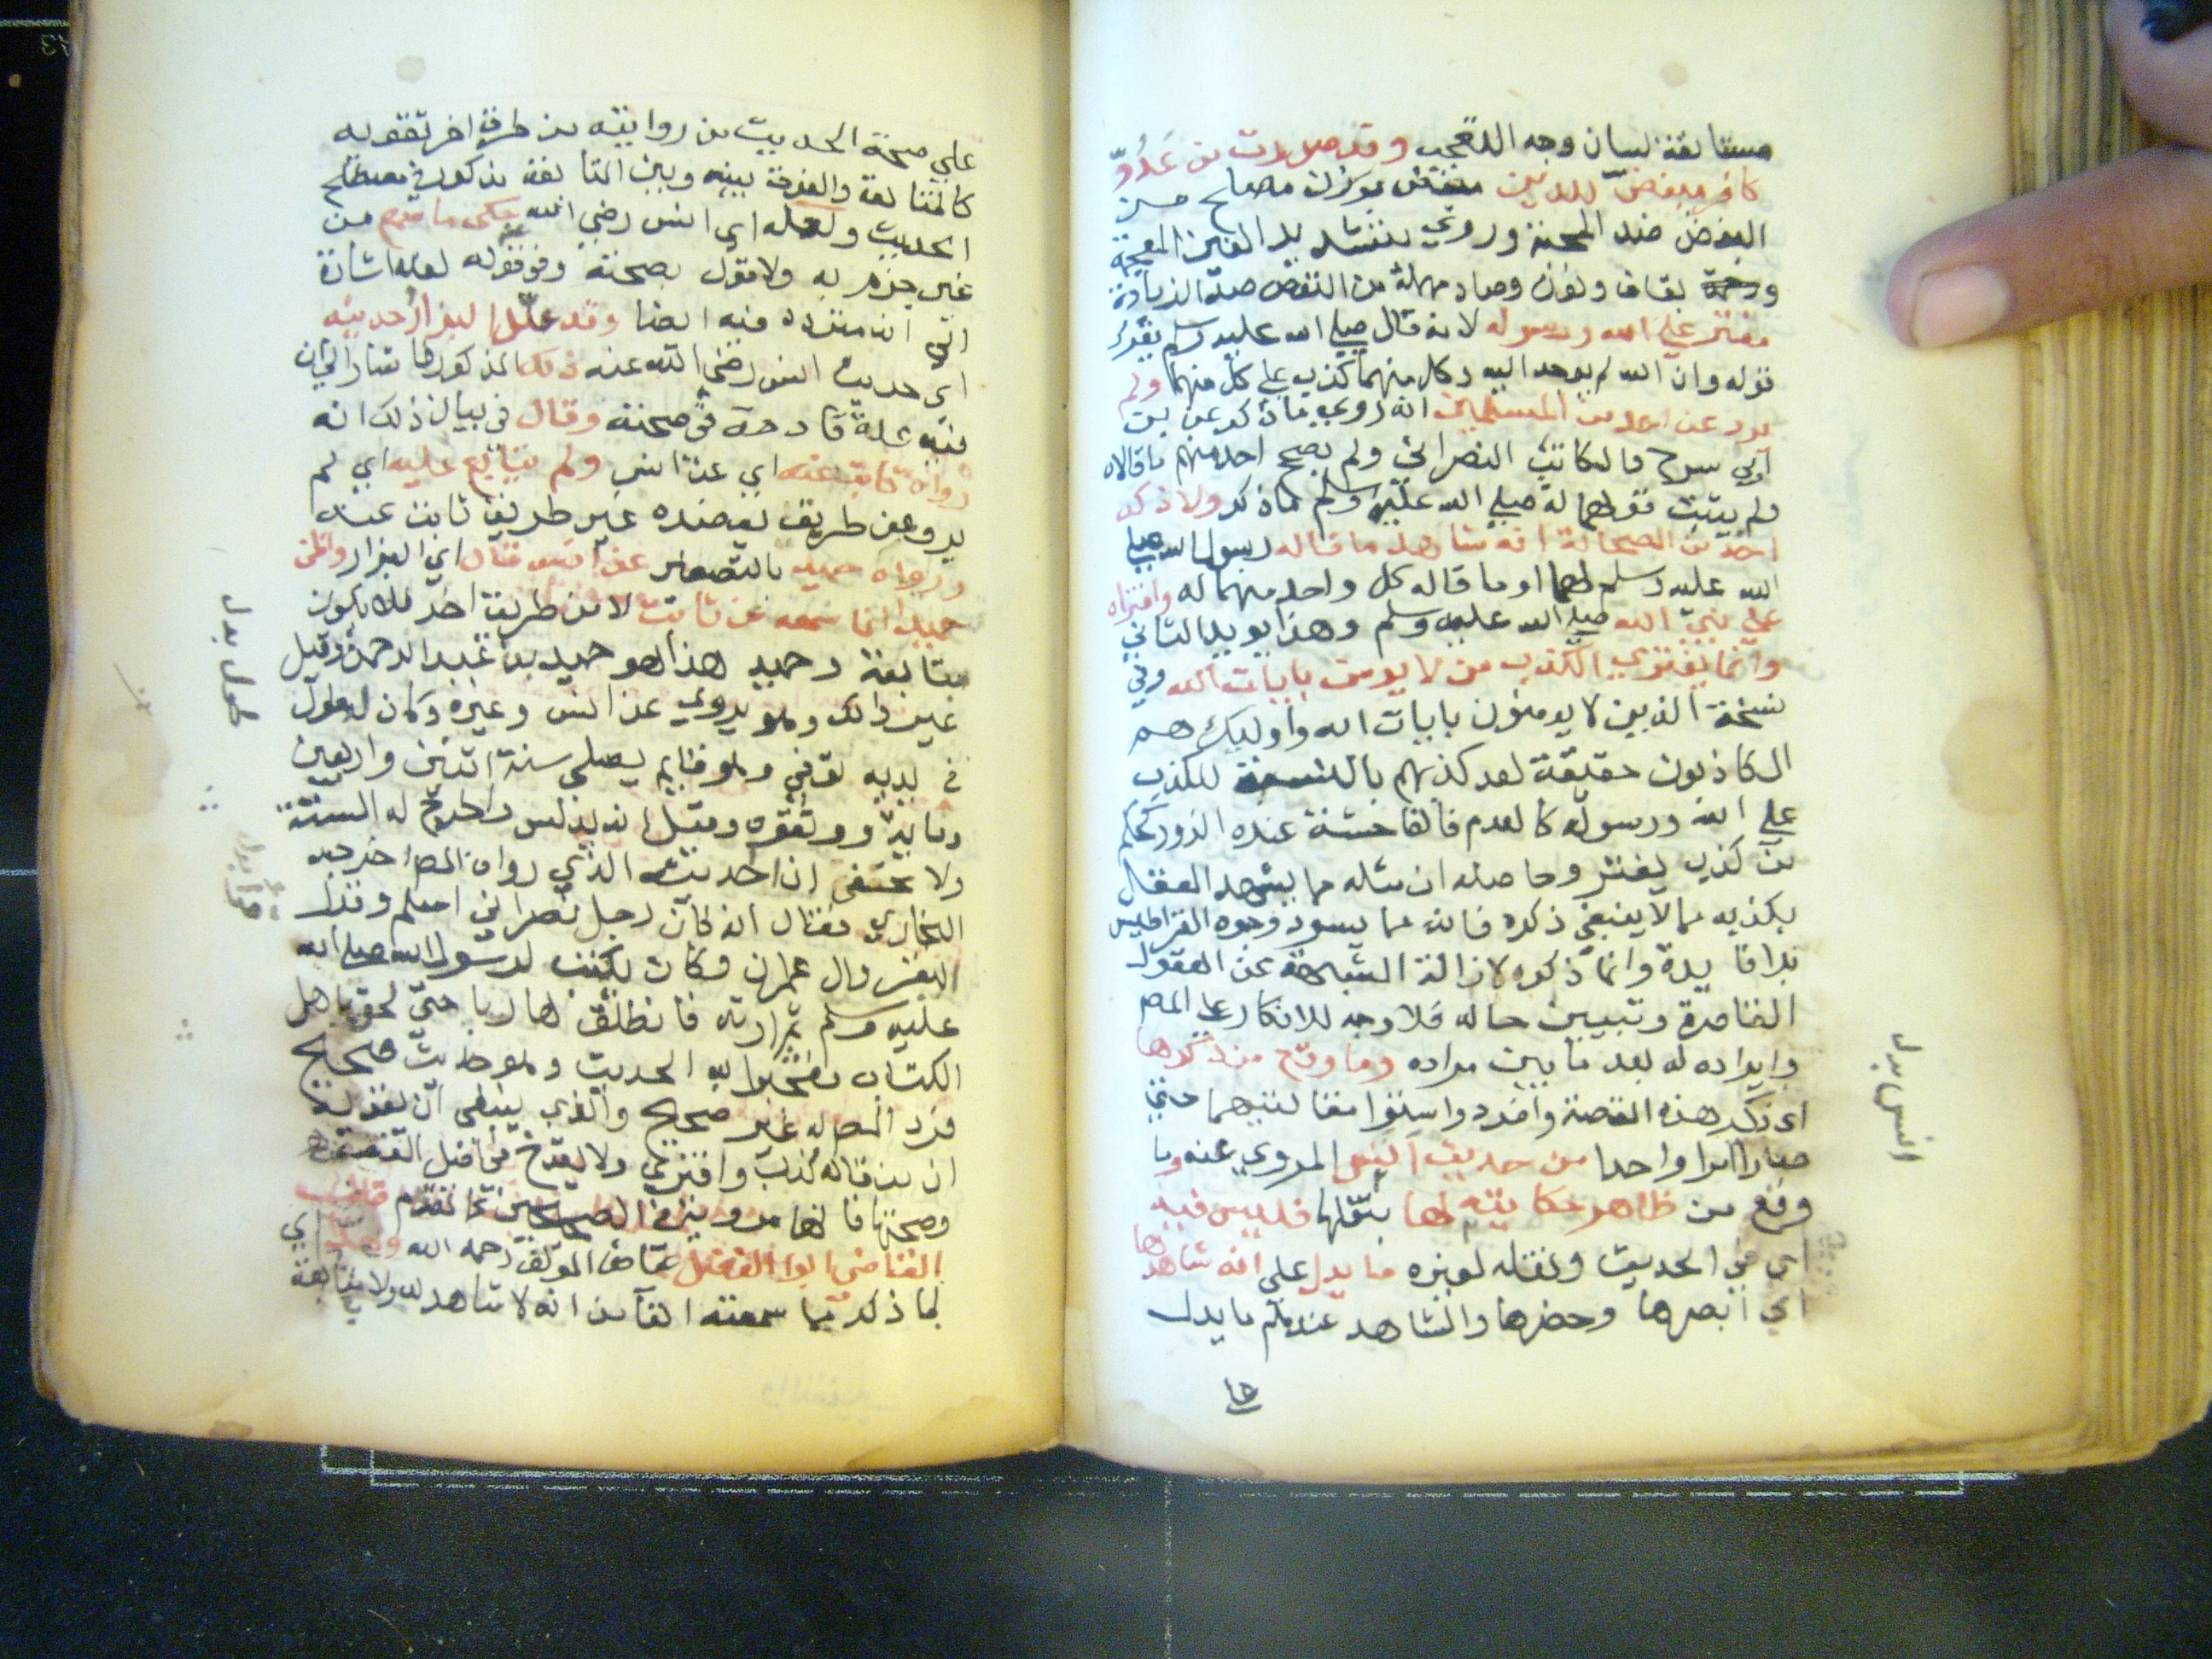 مستانفة لبيان وجه التعجب وقد صدرت من عدو
كافر مبغض للدين بوزن مصلح من
البغض ضد المحبة وروي بتشديد الغين المعجمة
وبقاف ونون وصاد مهملة من النقص ضد الزيادة
مفتر على الله ورسوله لانه قال صلى الله عليه وسلم يقرك
قوله وان الله لم يوحه اليه وكل منهما كذب على كل منهما ولم
يرد عن احد من المسلمين انه روي ما ذكر عن بن
ابي سرح والكاتب النصراني ولم يصح احد منهم ما قالاه
ولم يثبت قولهما له صلى الله عليه وسلم ما ذكر ولا ذكر
احد من الصحابة انه شاهد ما قاله رسول الله صلى
الله عليه وسلم لهما او ما قاله كل واحد منهما له وافتراه
على نبي الله صلى الله عليه وسلم وهذا يويد الثاني
وانما يفتري الكذب من لا يومن بايات الله وفي
نسخة الذين لا يومنون بايات الله واوليك هم
الكاذبون حقيقة لعد كذبهم بالنسبة للكذب
على الله ورسوله كالعدم فالفاحشة عنده الزور كحكم
من كذب يفتر وحاصله ان مثله مما يشهد العقل
بكذبه مما لا ينبغي ذكره فانه مما يسود وجوه القراطيس
بلا فايدة وانما ذكره لازالة الشبهة عن العقول
القاصرة وتبيين حاله فلا وجه للانكار على المص
وايراده له بعد ما بين مراده وما وقع من ذكرها
اي ذكر هذه القصة وافرد واستوا مقالتيهما حتي
صارا امرا واحدا من حديث انس المروي عنه وما
وقع من ظاهر حكايته لها بنقلها فليس فيه
اي في الحديث ونقله لغيره ما يدل على انه شاهدها
اي ابصرها وحضرها والشاهد عندهم ما يدل
على صحة الحديث من روايته من طرق اخر تقويه
كالمتابعة والفرق بينه وبين المتابعة مذكور في مصطلح
الحديث ولعله اي انس رضي الله حكى ما قدم من
غير جزم به ولا مقول بصحته وفوقوله لعله اشارة
الي انه متردد فيه ايضا وقد علل البزار حديثه
اي حديث انس رضي الله عنه ذلك المذكور
فيه علة قادحة في صحته وقال في بيان ذلك انه
رواه ثابت عنه اي عن انس ولم يتابع عليه اي لم
يرو عن طريق يعضده غير طريق ثابت عنه
ورواه حميد بالتصغير عن انس قال اي البزار واظن
حميدا انما سمعه عن ثابت لا من طريق اخر فلا يكون
متابعة وحميد هذا هو حميد بن عبد الرحمن وقيل
غير ذلك وهو يروي عن انس وغيره وكان له طول
في يديه توفي وهو قايم يصلي سنة اثنين واربعين
وماية ووثقوه وقيل انه يدلس واخرج له الستة
ولا يخفى ان حديثه الذي رواه المص اخرجه
البخاري فقال انه كان رجل نصراني اسلم وقرا
البقرة وال عمران وكان يكتب لرسول الله صلى الله
عليه وسلم ثم ارتد فانطلق هاربا حتي لحق باهل
الكتاب فاعجبوا به الحديث وهو حديث صحيح
فرد المص له غير صحيح والذي ينبغي ان يقول
ان من قاله كذب وافتري ولا يقدح في اصل القصة
وصحتها فانها مروية في الصحيحين كما تقدم قال
القاضي ابو الفضل عياض المولف رحمه الله اي
لما ذكر بما سمعته انفا من انه لا شاهد له ولا متابعة
طول بدل
انس بدل